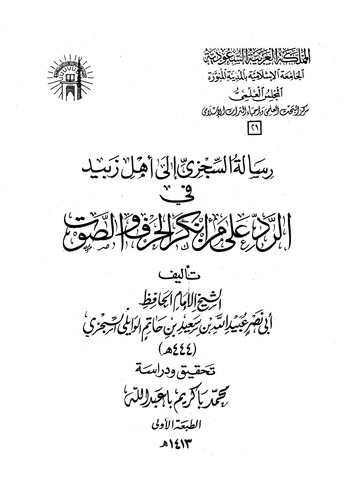 المملكة العربية السعودية
الجامعة الإسلامية بالمدينة المنورة
المجلس العلمي
مركز البحث العلمي وإحياء التراث الإسلامي
٢٦
رسالة السجزي إلى أهل زبيد
في
الرد على من أنكر الحرف والصوت
تأليف
الشيخ الإمام الحافظ
أبي نصر عبيد الله بن سعيد بن حاتم الوايلي السجزي
(٤٤٤هـ)
تحقيق ودراسة
محمد باكريم باعبد الله
الطبعة الأولى
١٤١٣هـ